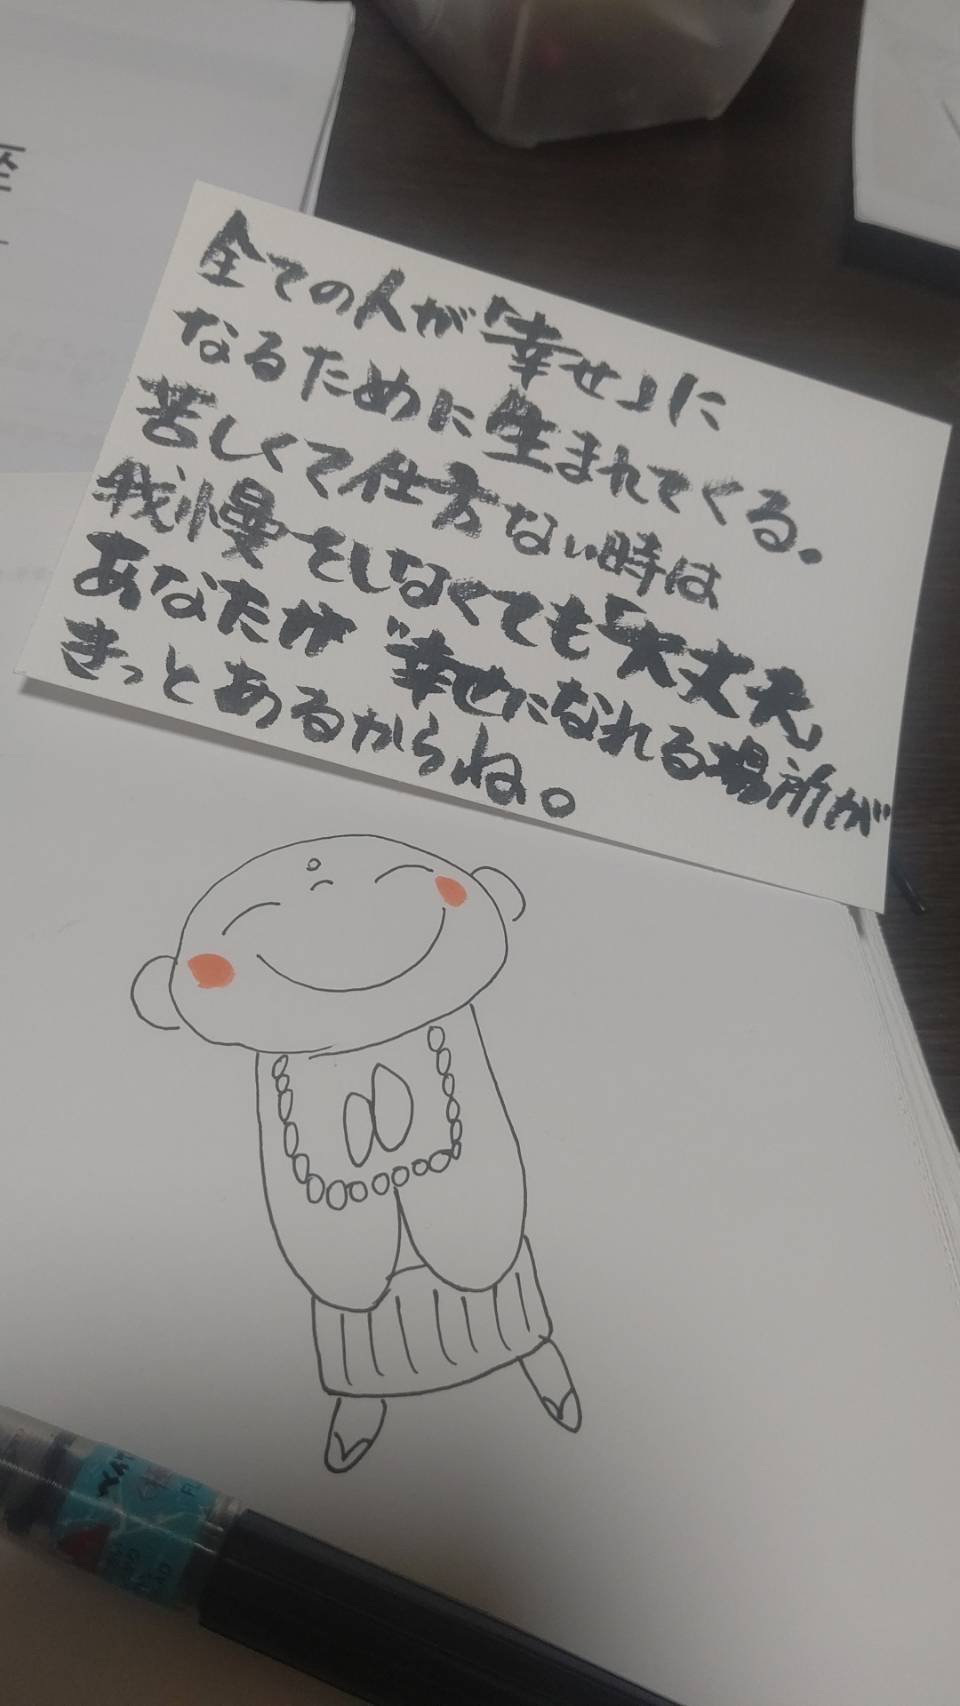 全ての人が「幸せ」に
なるために生まれてくる。
苦しくて仕方ない時は
我慢をしなくても「大丈夫」
あなたが“幸せになれる場所が
きっとあるからね。